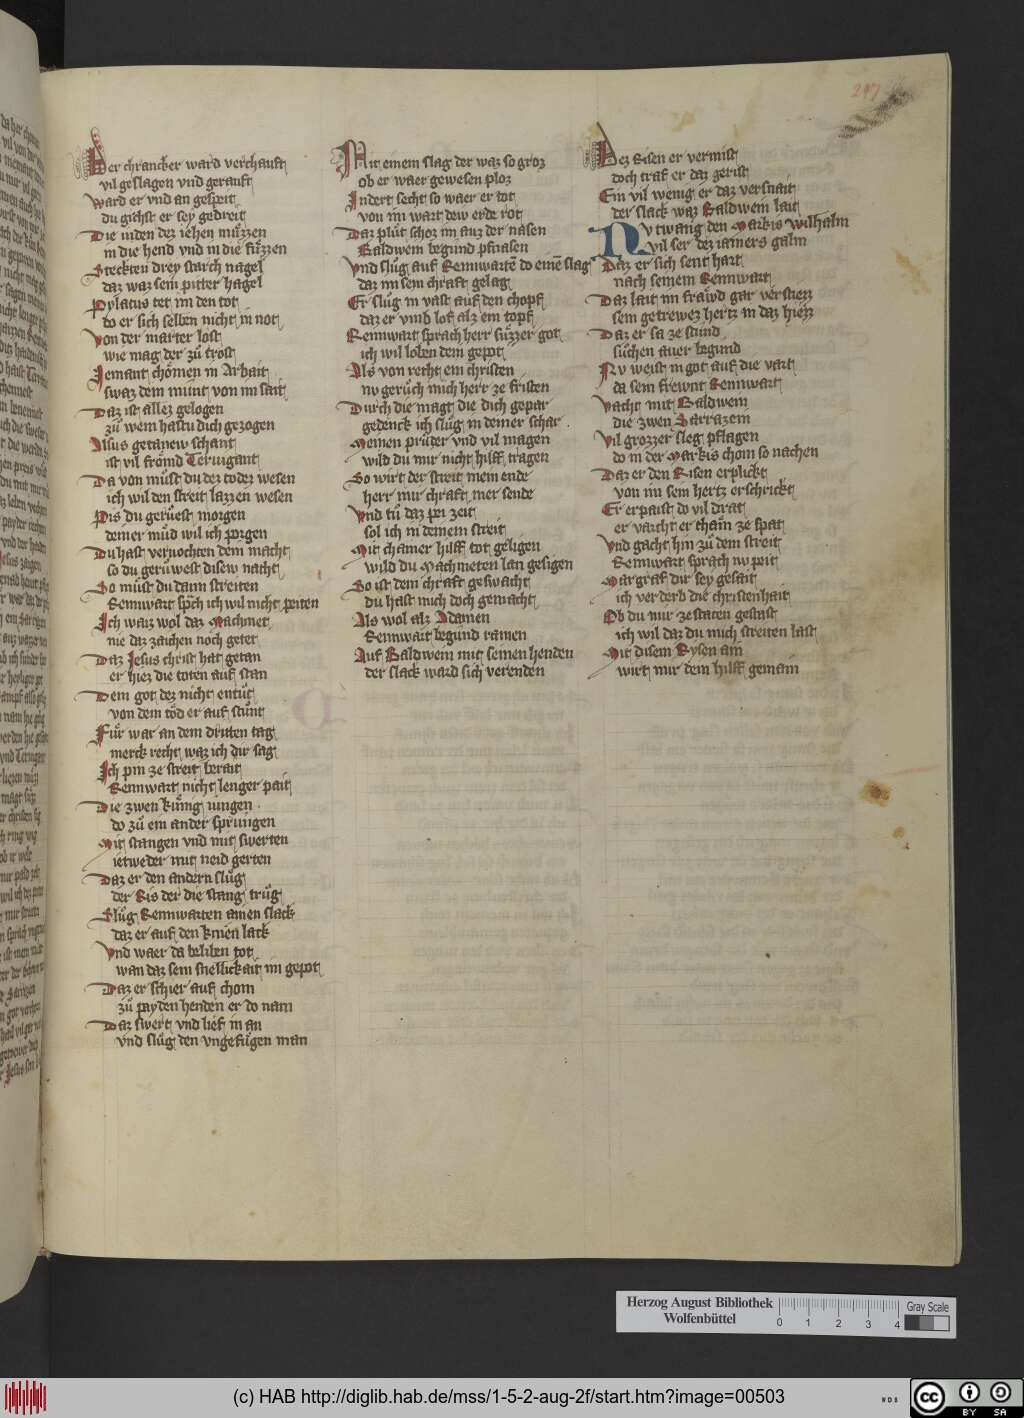 247
Der chrancker ward verchauft
vil geslagen vnd gerauft
Ward er vnd an gespeit
du gichst er sey gedreit
Die iuden dez iehen můzzen
in die hend vnd in die fůzzen
Steckten drey starch nagel
daz waz sein pitter hagel
Pylatus tet im den tot
do er sich selben nicht in not
Von der marter lost
wie mag der zů trost
Jemant chomen in Arbait
swaz dem munt von im sait
Daz ist allez gelogen
zů wem hastu dich gezogen
Alsus getanew schant
ist vil frömd Teruigant
Da von můst du dez todez wesen
ich wil den streit lazzen wesen
Pis du geruest morgen
deiner můd wil ich porgen
Du hast veruochten dein macht
so du gerůwest disew nacht
So můst du dann streiten
Rennwart sprch ich wil nicht peiten
Ich waiz wol daz Machmet
nie daz zaichen noch getet
Daz Jesus christ hat getan
er hiez die toten auf stan
Dem got dez nicht entůt
von dem töd er auf stůnt
Fůr war an dem dritten tag
merck recht waz ich dir sag
Ich pin ze streit berait
Rennwart nicht lenger pait
Die zwen kůnig iungen
do zů ein ander sprungen
Mit stangen vnd mit swerten
ietweder mit neid gerten
Daz er den andern slůg
der Ris der die stang trůg
Slůg Rennwarten ainen slack
daz er auf den knien lack
Vnd waer da beliben tot
wan daz sein snellickait im gepot
Daz er schier auf chom
zů payden henden er do nam
Daz swert vnd lief in an
vnd slůg den vngefůgen man
Mit einem slag der waz so groz
ob er waer gewesen ploz
Indert secht so waer er tot
von im wart dew erde rot
Daz plůt schoz im auz der nasen
Baldwein begund pfnasen
Vnd slůg auf Rennwartē do einē slag
daz im sein chraft gelag
Er slůg in vast auf den chopf
daz er vmb lof alz ein topf
Rennwart sprach herr sůzzer got
ich wil loben dein gepot
Als von recht ein christen
nv gerůch mich herr ze fristen
Durch die magt die dich gepar
gedenck ich slůg in deiner schar
Meinen průder vnd vil magen
wild du mir nicht hilff tragen
So wirt der streit mein ende
herr mir chraft mer sende
Vnd tů daz pei zeit
sol ich in deinem streit
Mit chainer hilff tot geligen
wild du Machmeten lan gesigen
So ist dein chraft geswacht
du hast mich doch gemacht
Als wol alz Adamen
Rennwart begund ramen
Auf Baldwein mit seinen henden
der slack ward sich verenden
Dez Risen er vermist
doch traf er daz gerist
Ein vil wenig er daz versnait
der slack waz Baldwein lait
Nv twang den Markis wilhalm
vil ser dez iamers galm
Daz er sich sent hart
nach seinem Rennwart
Daz lait im fraẘd gar verstiez
sein getrewez hertz in daz hiezz
Daz er sa ze stund
sůchen auer begund
Nv weist in got auf die vart
da sein frewnt Rennwart
Vacht mit Baldwein
die zwen Sarrazein
Vil grozzer sleg pflagen
do in der Markis chom so nachen
Daz er den Risen erplickt
von im sein hertz erschrickt
Er erpaist do vil drat
er vorcht er chäm ze spat
Vnd gacht hin zů dem streit
Rennwart sprach nv peit
Margraf dir sey gesait
ich verderb die christenhait
Ob du mir ze staten gestast
ich wil daz du mich streiten last
Mit disem Rysen ain
wirt mir dein hilff gemain
Herzog August Bibliothek
Wolfenbüttel
0 1 2 3 4
Gray Scale
(c) HAB http://diglib.hab.de/mss/1-5-2-aug-2f/start.htm?image=00503
cc BY SA